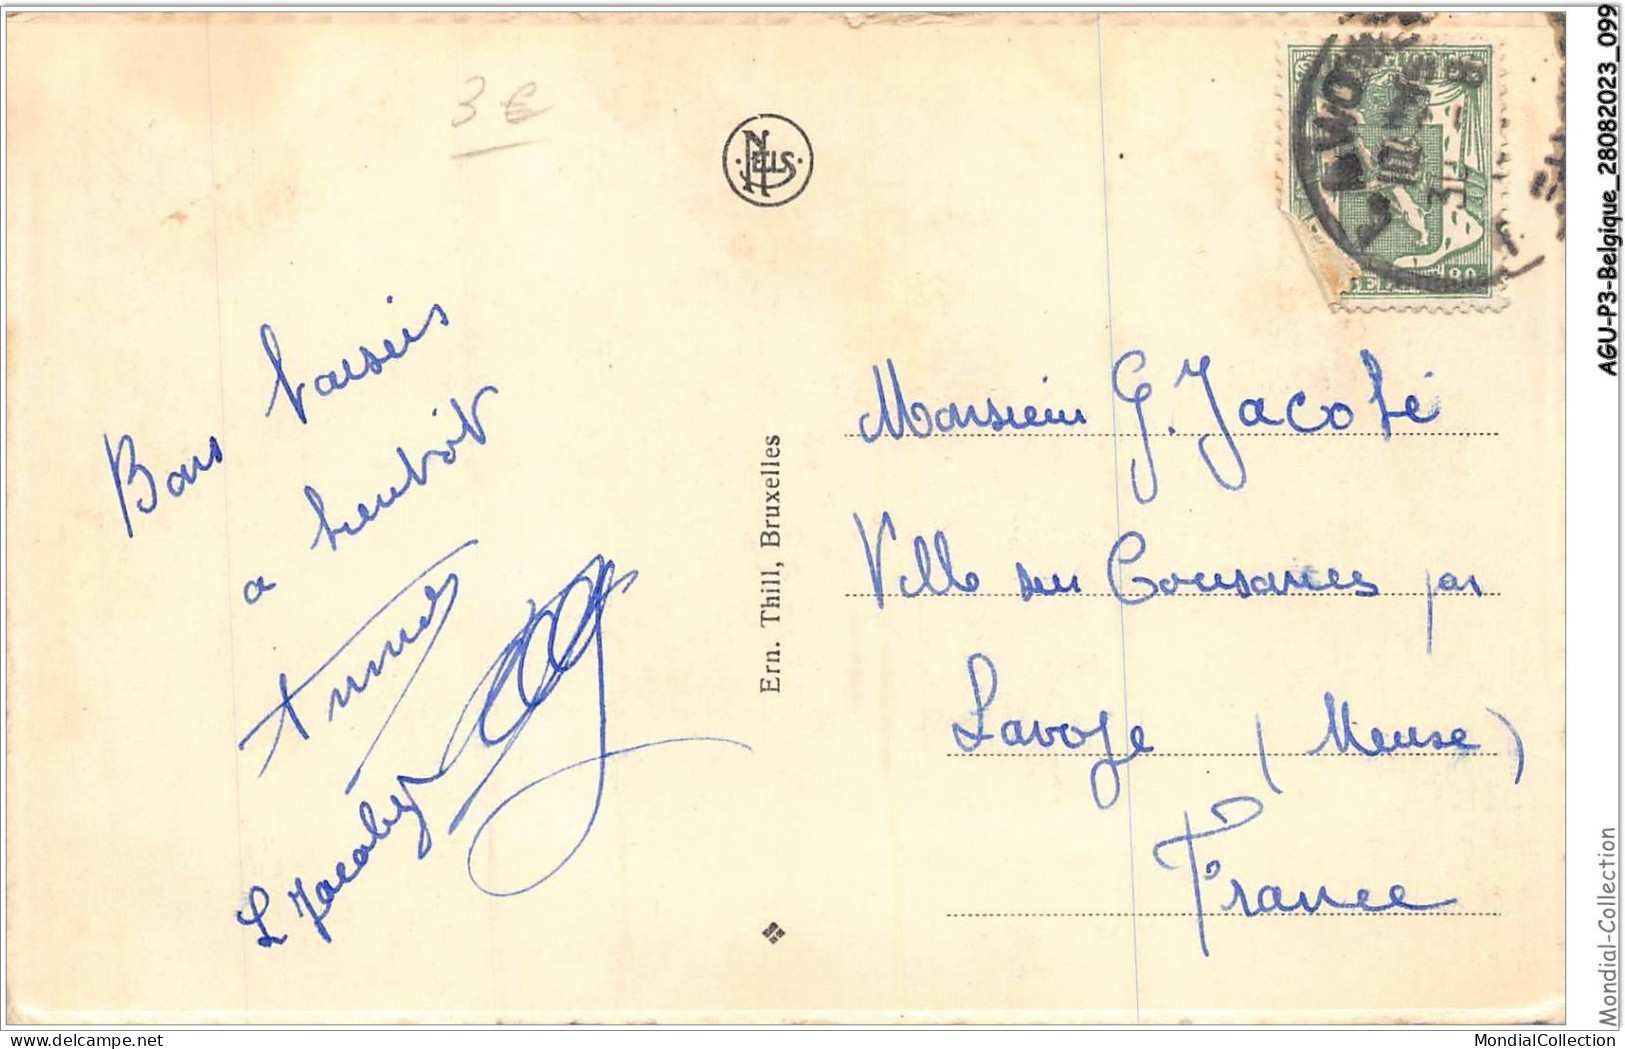 3 €
NELS
Bons baisers
a bientôt
L Jacoby
Ern. Thill, Bruxelles
Monsieur G. Jacobé
Ville sur Cousances par
Lavoye (Meuse)
France
AGU-P3-Belgique_28082023_099
Mondial-Collection
www.delcampe.net
MondialCollection